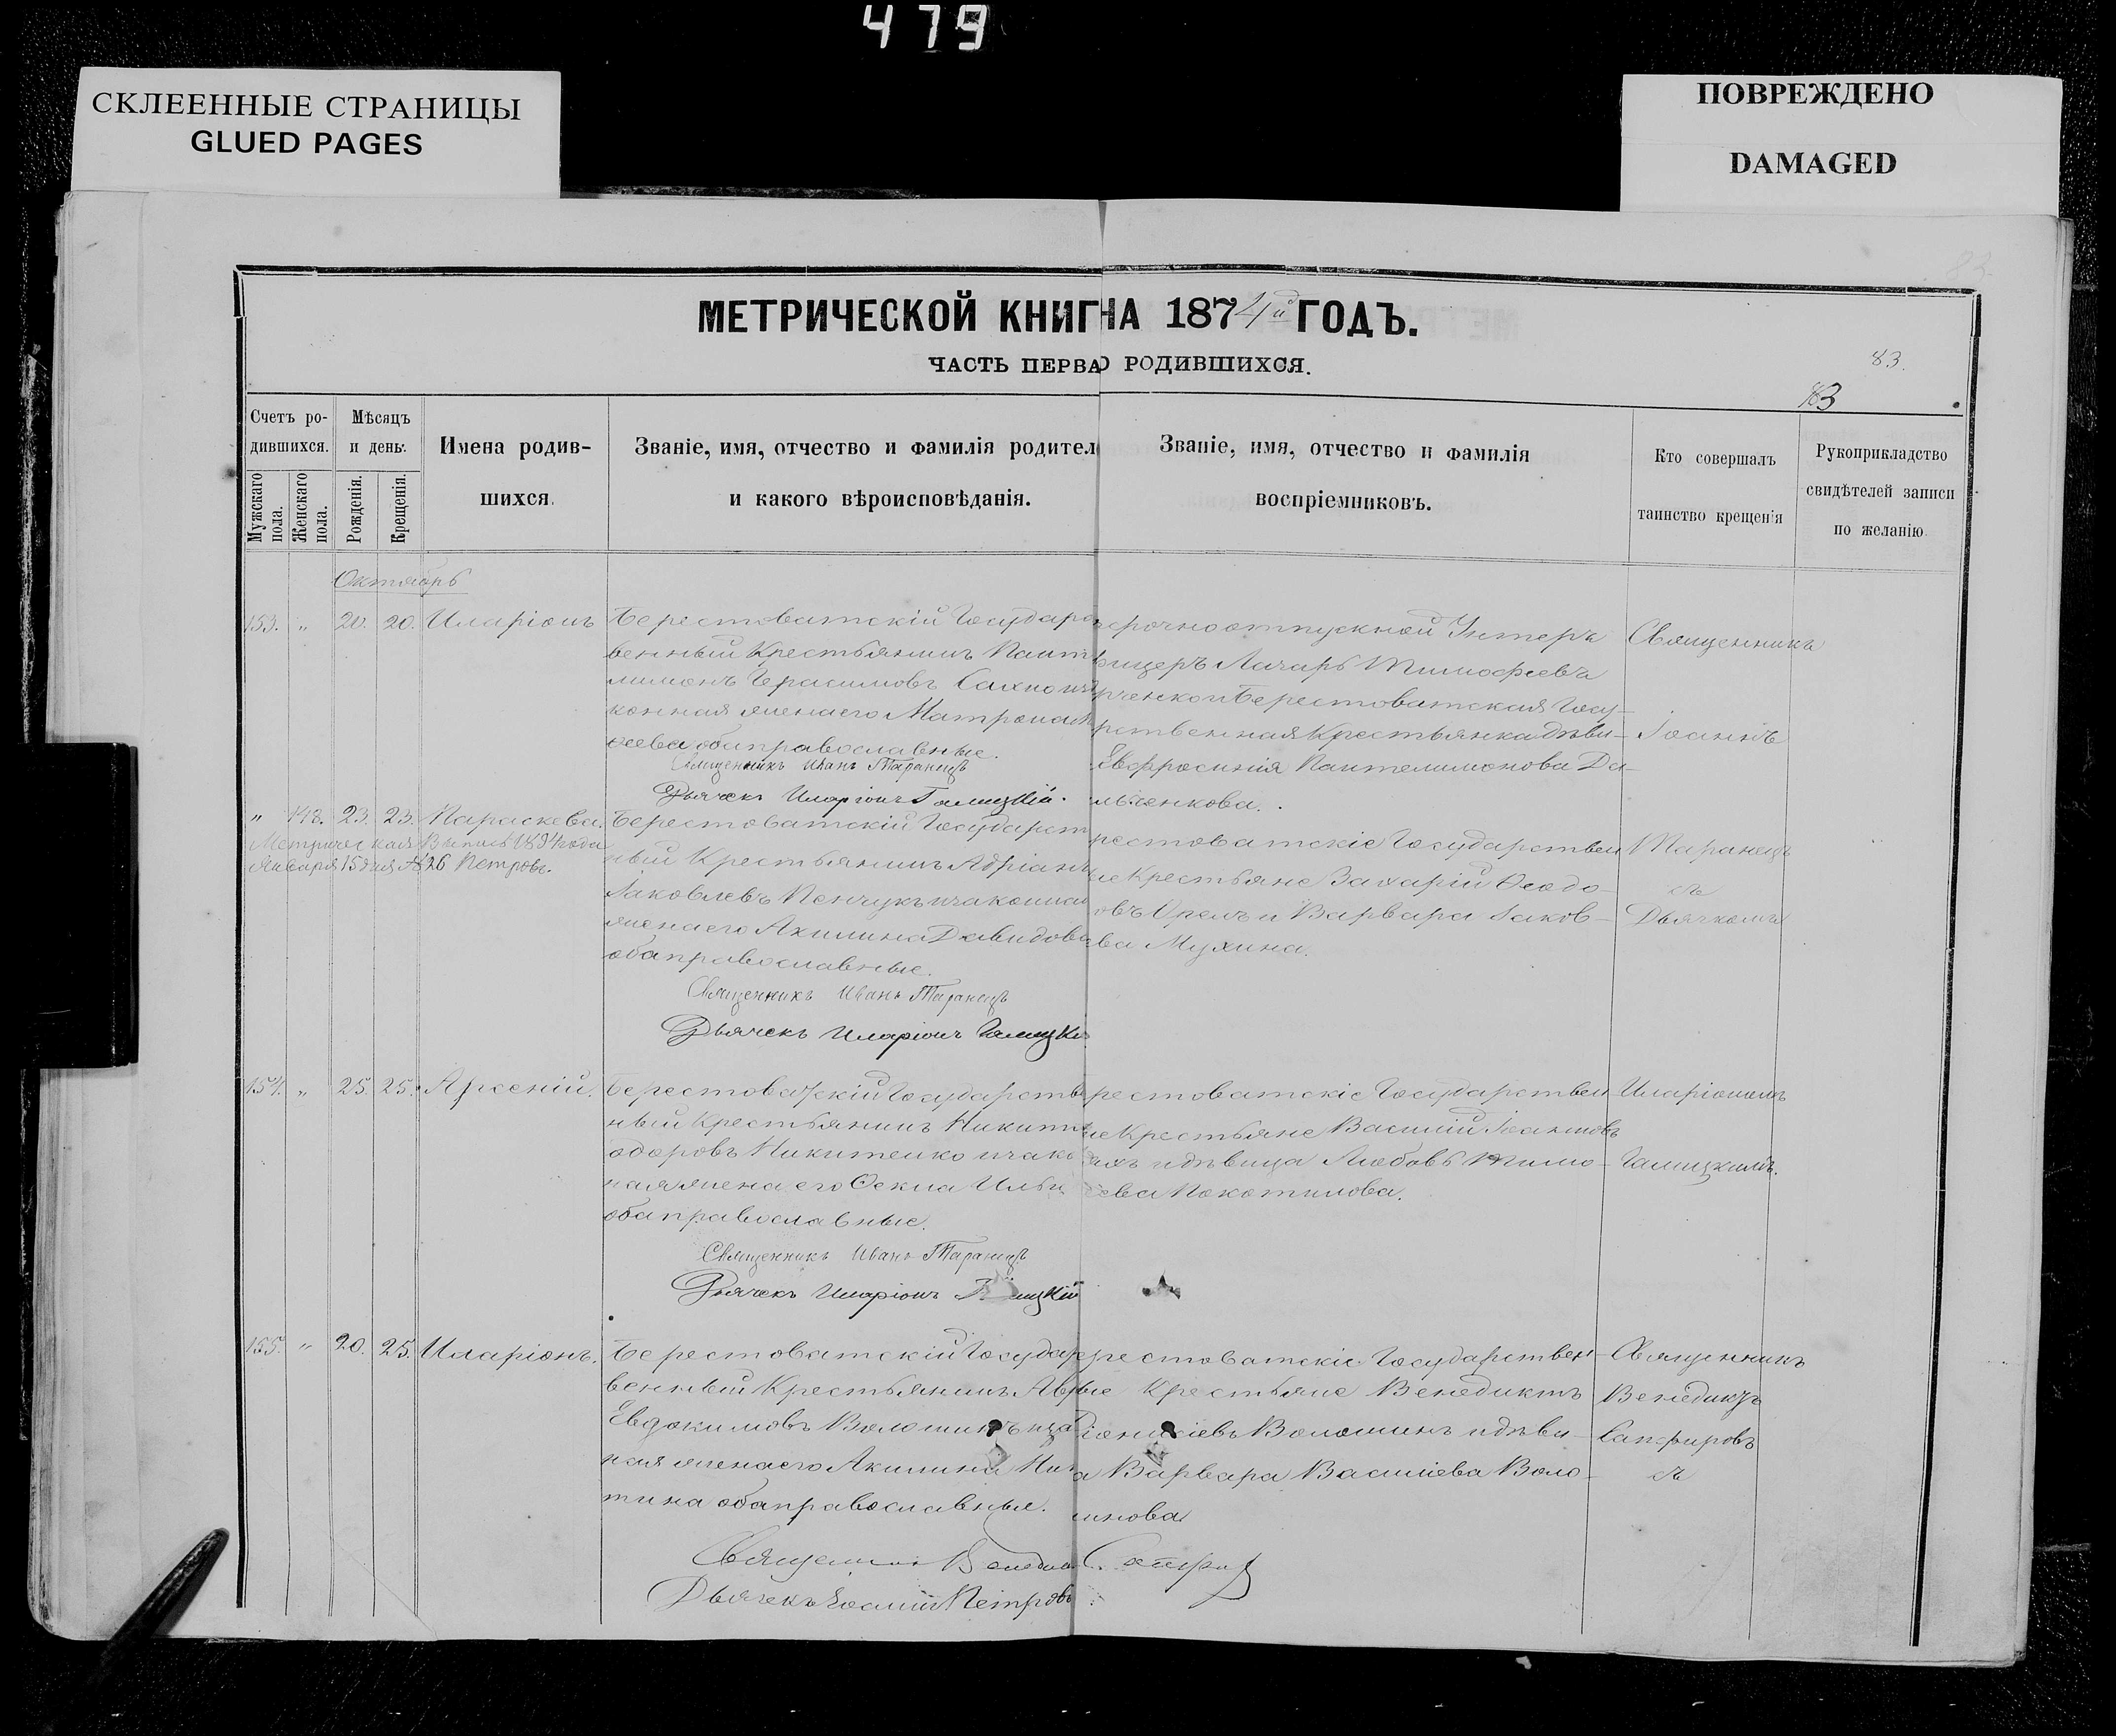 479
СКЛЕЕННЫЕ СТРАНИЦЫ
GLUED PAGES
ПОВРЕЖДЕНО
DAMAGED
МЕТРИЧЕСКОЙ КНИГ НА 1874й ГОДЪ.
ЧАСТЬ ПЕРВА О РОДИВШИХСЯ.
83.
83
Счетъ ро-
дившихся.
Мужскаго пола.
Женскаго пола.
Мѣсяцъ
и день.
Рожденія.
Крещенія.
Имена родив-
шихся.
Званіе, имя, отчество и фамилія родител
и какого вѣроисповѣданія.
Званіе, имя, отчество и фамилія
воспріемниковъ.
Кто совершалъ
таинство крещенія
Рукоприкладство
свидѣтелей записи
по желанію
Октябрь
153. „ 20. 20. Иларіонъ
Берестоватскій Государс
венный Крестьянинъ Пант
лимонъ Герасимовъ
конная жена его Матрона
оба православные.
Священникъ Иванъ Таранецъ
Дьячекъ Иларіонъ Галицкій.
срочноотпускной Унтеръ
фицеръ Лазарь Тимофеевъ
Берестоватская Госу-
рственная Крестьянка дѣви-
Евфросинія Пантелимонова Да-
Священникъ
Іоаннъ
„ 148. 23. 23. Параскева.
Метрическая Выпись 1894 года
Января 15 дня № 26 Петровъ.
Берестоватскій Государст
ный Крестьянинъ Адріанъ
Іаковлевъ Пенчукъ и законная
жена его Акилина Давидова
оба православные.
Священникъ Иванъ Таранецъ
Дьячекъ Иларіонъ Галицкі
рестоватскіе Государствен
ые Крестьяне Захарій Ѳеодо-
овъ Орелъ и Варвара Іаков-
ва Мухина.
Таранецъ
съ
Дьячкомъ
154. „ 25. 25. Арсеній.
Берестоватскій Государстве
ный Крестьянинъ Никита
одоровъ Никитенко и зако
ная жена его Ѳекла Ильи
оба православные.
Священникъ Иванъ Таранецъ
Дьячекъ Иларіонъ Галицкій
рестоватскіе Государствен
ые Крестьяне Василій Іоанновъ
и дѣвица Любовь Тимо-
еева Покотилова.
Иларіономъ
Галицкимъ.
155. „ 20. 25. Иларіонъ.
Берестоватскій Государ
венный Крестьянинъ Ав
Евдокимовъ Волошинъ и за
ная жена его Акилина Ни
тина оба православные.
Дьячекъ Петровъ
рестоватскіе Государствен-
ые Крестьяне Венедиктъ
Волошинъ и дѣви-
а Варвара Васильева Воло-
инова
Священникъ
Венедиктъ
Сапфировъ
съ